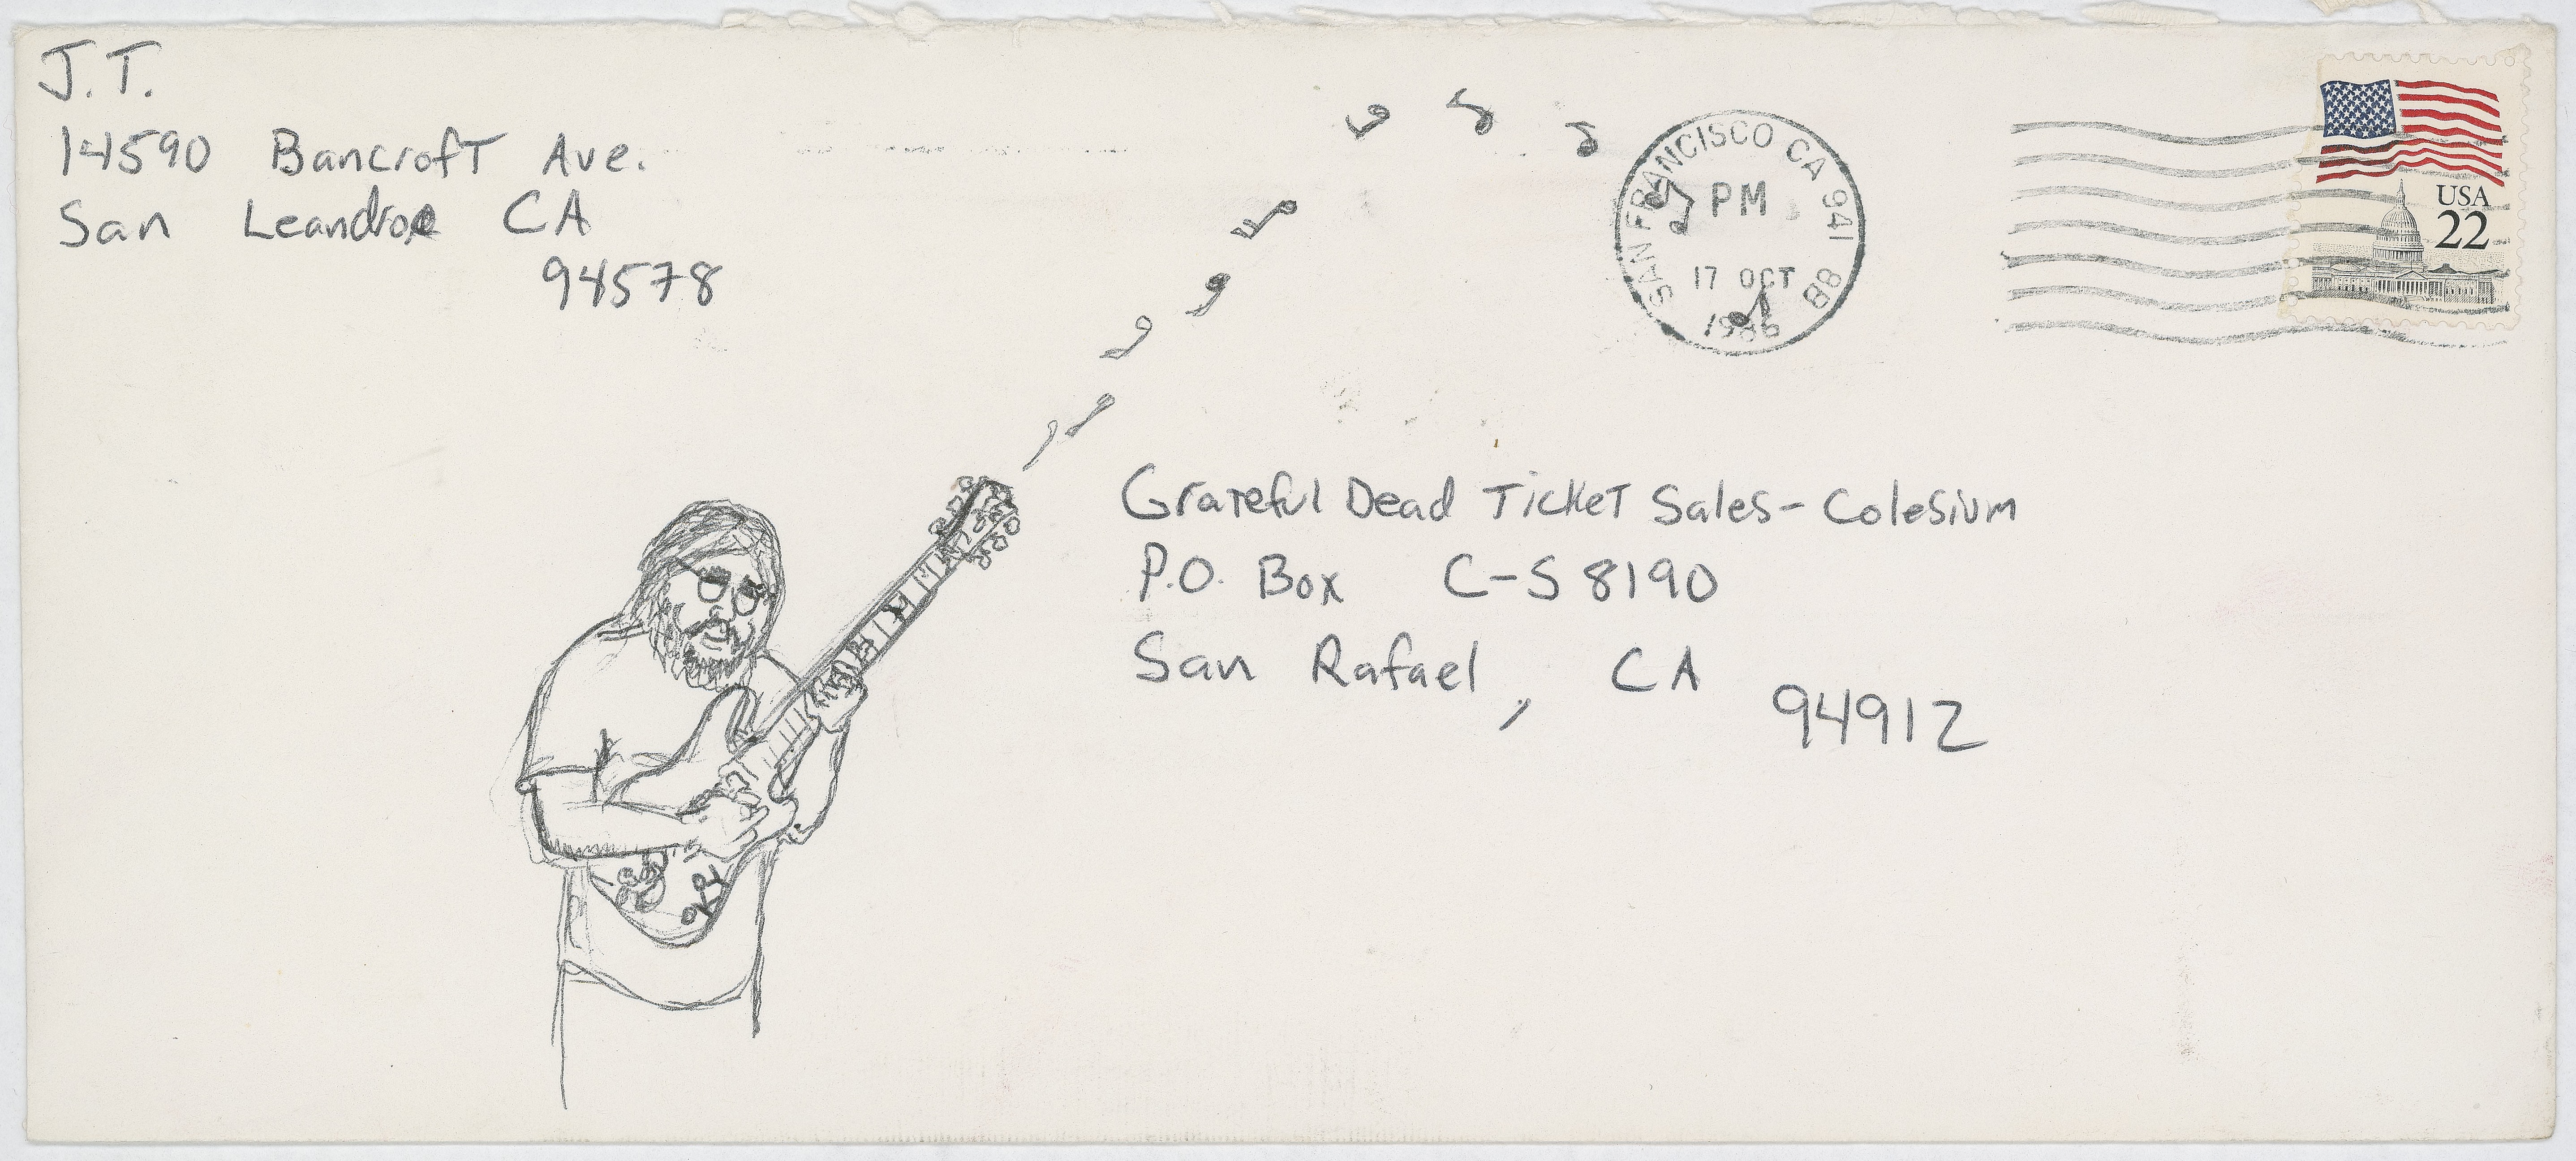 J.T.
14590 Bancroft Ave.
San Leandro CA
94578
SAN FRANCISCO CA 941 8B
PM
17 OCT
1986
USA
22
Grateful Dead Ticket Sales - Colesium
P.O. Box C-S 8190
San Rafael, CA
94912